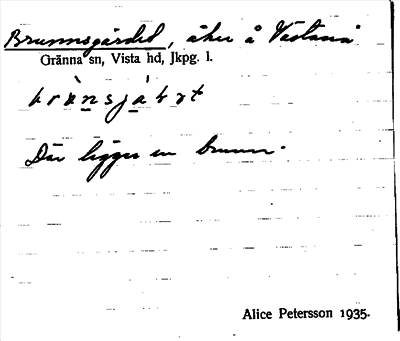 Brunnsgärdet, åker å Västanå
Gränna sn, Vista hd, Jkpg. l.
Där ligger en brunn.
Alice Petersson 1935.